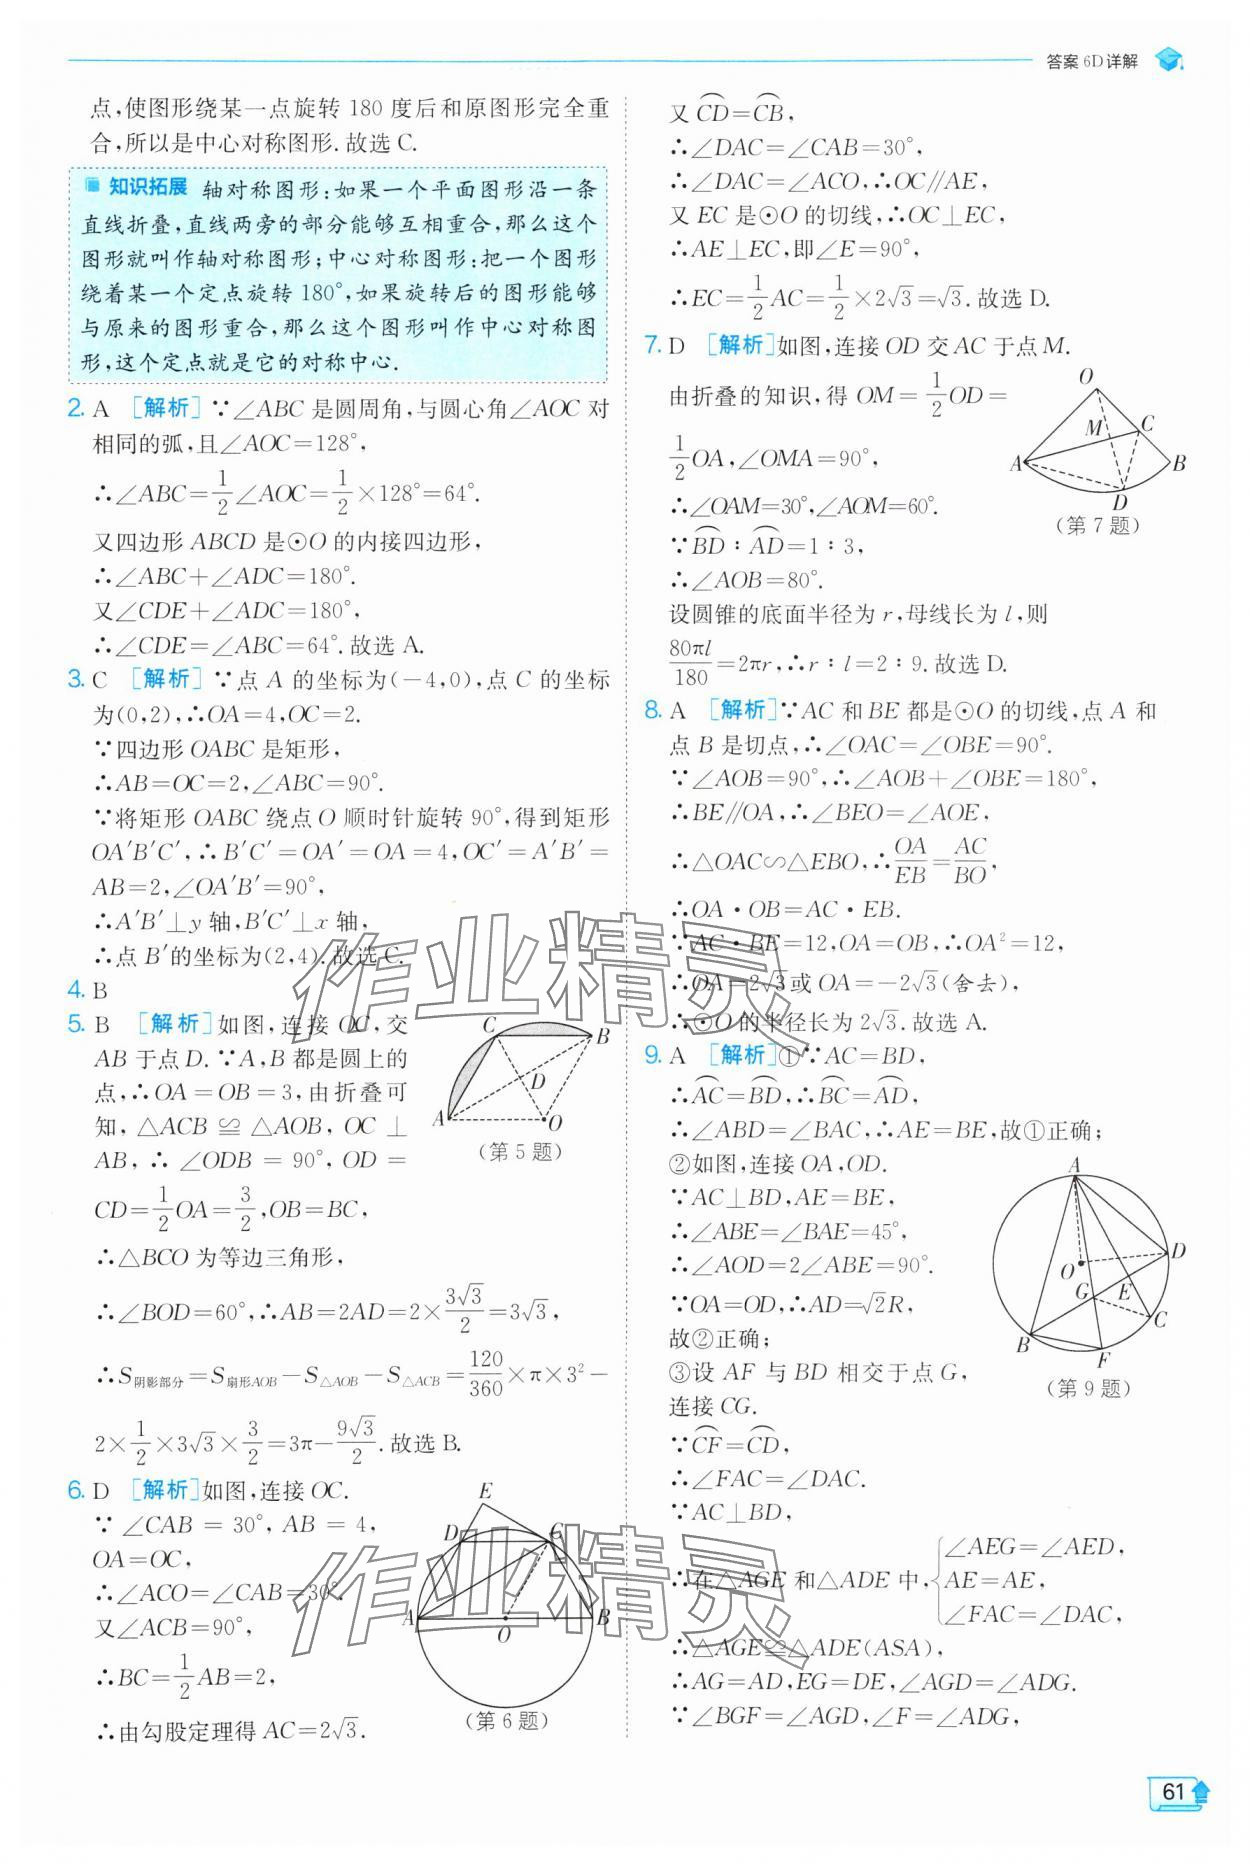 答案 6D 详解
点,使图形绕某一点旋转 180 度后和原图形完全重
合,所以是中心对称图形.故选 C.
知识拓展 轴对称图形:如果一个平面图形沿一条
直线折叠,直线两旁的部分能够互相重合,那么这个
图形就叫作轴对称图形;中心对称图形:把一个图形
绕着某一个定点旋转 180°,如果旋转后的图形能够
与原来的图形重合,那么这个图形叫作中心对称图
形,这个定点就是它的对称中心.
2. A [解析]∵∠ABC 是圆周角,与圆心角∠AOC 对
相同的弧,且∠AOC=128°,
∴∠ABC=1/2∠AOC=1/2×128°=64°.
又四边形 ABCD 是⊙O 的内接四边形,
∴∠ABC+∠ADC=180°.
又∠CDE+∠ADC=180°,
∴∠CDE=∠ABC=64°.故选 A.
3. C [解析]∵点 A 的坐标为(-4,0),点 C 的坐标
为(0,2),∴OA=4,OC=2.
∵四边形 OABC 是矩形,
∴AB=OC=2,∠ABC=90°.
∵将矩形 OABC 绕点 O 顺时针旋转 90°,得到矩形
OA′B′C′,∴B′C′=OA′=OA=4,OC′=A′B′=
AB=2,∠OA′B′=90°,
∴A′B′⊥y 轴,B′C′⊥x 轴,
∴点 B′的坐标为(2,4).故选 C.
4. B
5. B [解析]如图,连接 OC,交
AB 于点 D.∵A,B 都是圆上的
点,∴OA=OB=3,由折叠可
知,△ACB≌△AOB,OC⊥
AB,∴∠ODB=90°,OD=
CD=1/2OA=3/2,OB=BC,
∴△BCO 为等边三角形,
∴∠BOD=60°,∴AB=2AD=2×3√3/2=3√3,
∴S阴影部分=S扇形AOB-S△AOB-S△ACB=120/360×π×3²-
2×1/2×3√3×3/2=3π-9√3/2.故选 B.
C B D A O
(第 5 题)
6. D [解析]如图,连接 OC.
∵∠CAB=30°,AB=4,
OA=OC,
∴∠ACO=∠CAB=30°.
又∠ACB=90°,
∴BC=1/2AB=2,
∴由勾股定理得 AC=2√3.
E D C A O B
(第 6 题)
又 C͡D=C͡B,
∴∠DAC=∠CAB=30°,
∴∠DAC=∠ACO,∴OC∥AE,
又 EC 是⊙O 的切线,∴OC⊥EC,
∴AE⊥EC,即∠E=90°,
∴EC=1/2AC=1/2×2√3=√3.故选 D.
7. D [解析]如图,连接 OD 交 AC 于点 M.
由折叠的知识,得 OM=1/2OD=
1/2OA,∠OMA=90°,
∴∠OAM=30°,∠AOM=60°.
∵B͡D∶A͡D=1∶3,
∴∠AOB=80°.
设圆锥的底面半径为 r,母线长为 l,则
80πl/180=2πr,∴r∶l=2∶9.故选 D.
O M C A B D
(第 7 题)
8. A [解析]∵AC 和 BE 都是⊙O 的切线,点 A 和
点 B 是切点,∴∠OAC=∠OBE=90°.
∵∠AOB=90°,∴∠AOB+∠OBE=180°,
∴BE∥OA,∴∠BEO=∠AOE,
∴△OAC∽△EBO,∴OA/EB=AC/BO,
∴OA·OB=AC·EB.
∵AC·BE=12,OA=OB,∴OA²=12,
∴OA=2√3或 OA=-2√3(舍去),
∴⊙O 的半径长为 2√3.故选 A.
9. A [解析]①∵AC=BD,
∴A͡C=B͡D,∴B͡C=A͡D,
∴∠ABD=∠BAC,∴AE=BE,故①正确;
②如图,连接 OA,OD.
∵AC⊥BD,AE=BE,
∴∠ABE=∠BAE=45°,
∴∠AOD=2∠ABE=90°.
∵OA=OD,∴AD=√2R,
故②正确;
③设 AF 与 BD 相交于点 G,
连接 CG.
∵C͡F=C͡D,
∴∠FAC=∠DAC.
∵AC⊥BD,
∴在△AGE 和△ADE 中,{∠AEG=∠AED,
AE=AE,
∠FAC=∠DAC,
∴△AGE≌△ADE(ASA),
∴AG=AD,EG=DE,∠AGD=∠ADG.
∵∠BGF=∠AGD,∠F=∠ADG,
A D O G E C B F
(第 9 题)
作业精灵
作业精灵
61